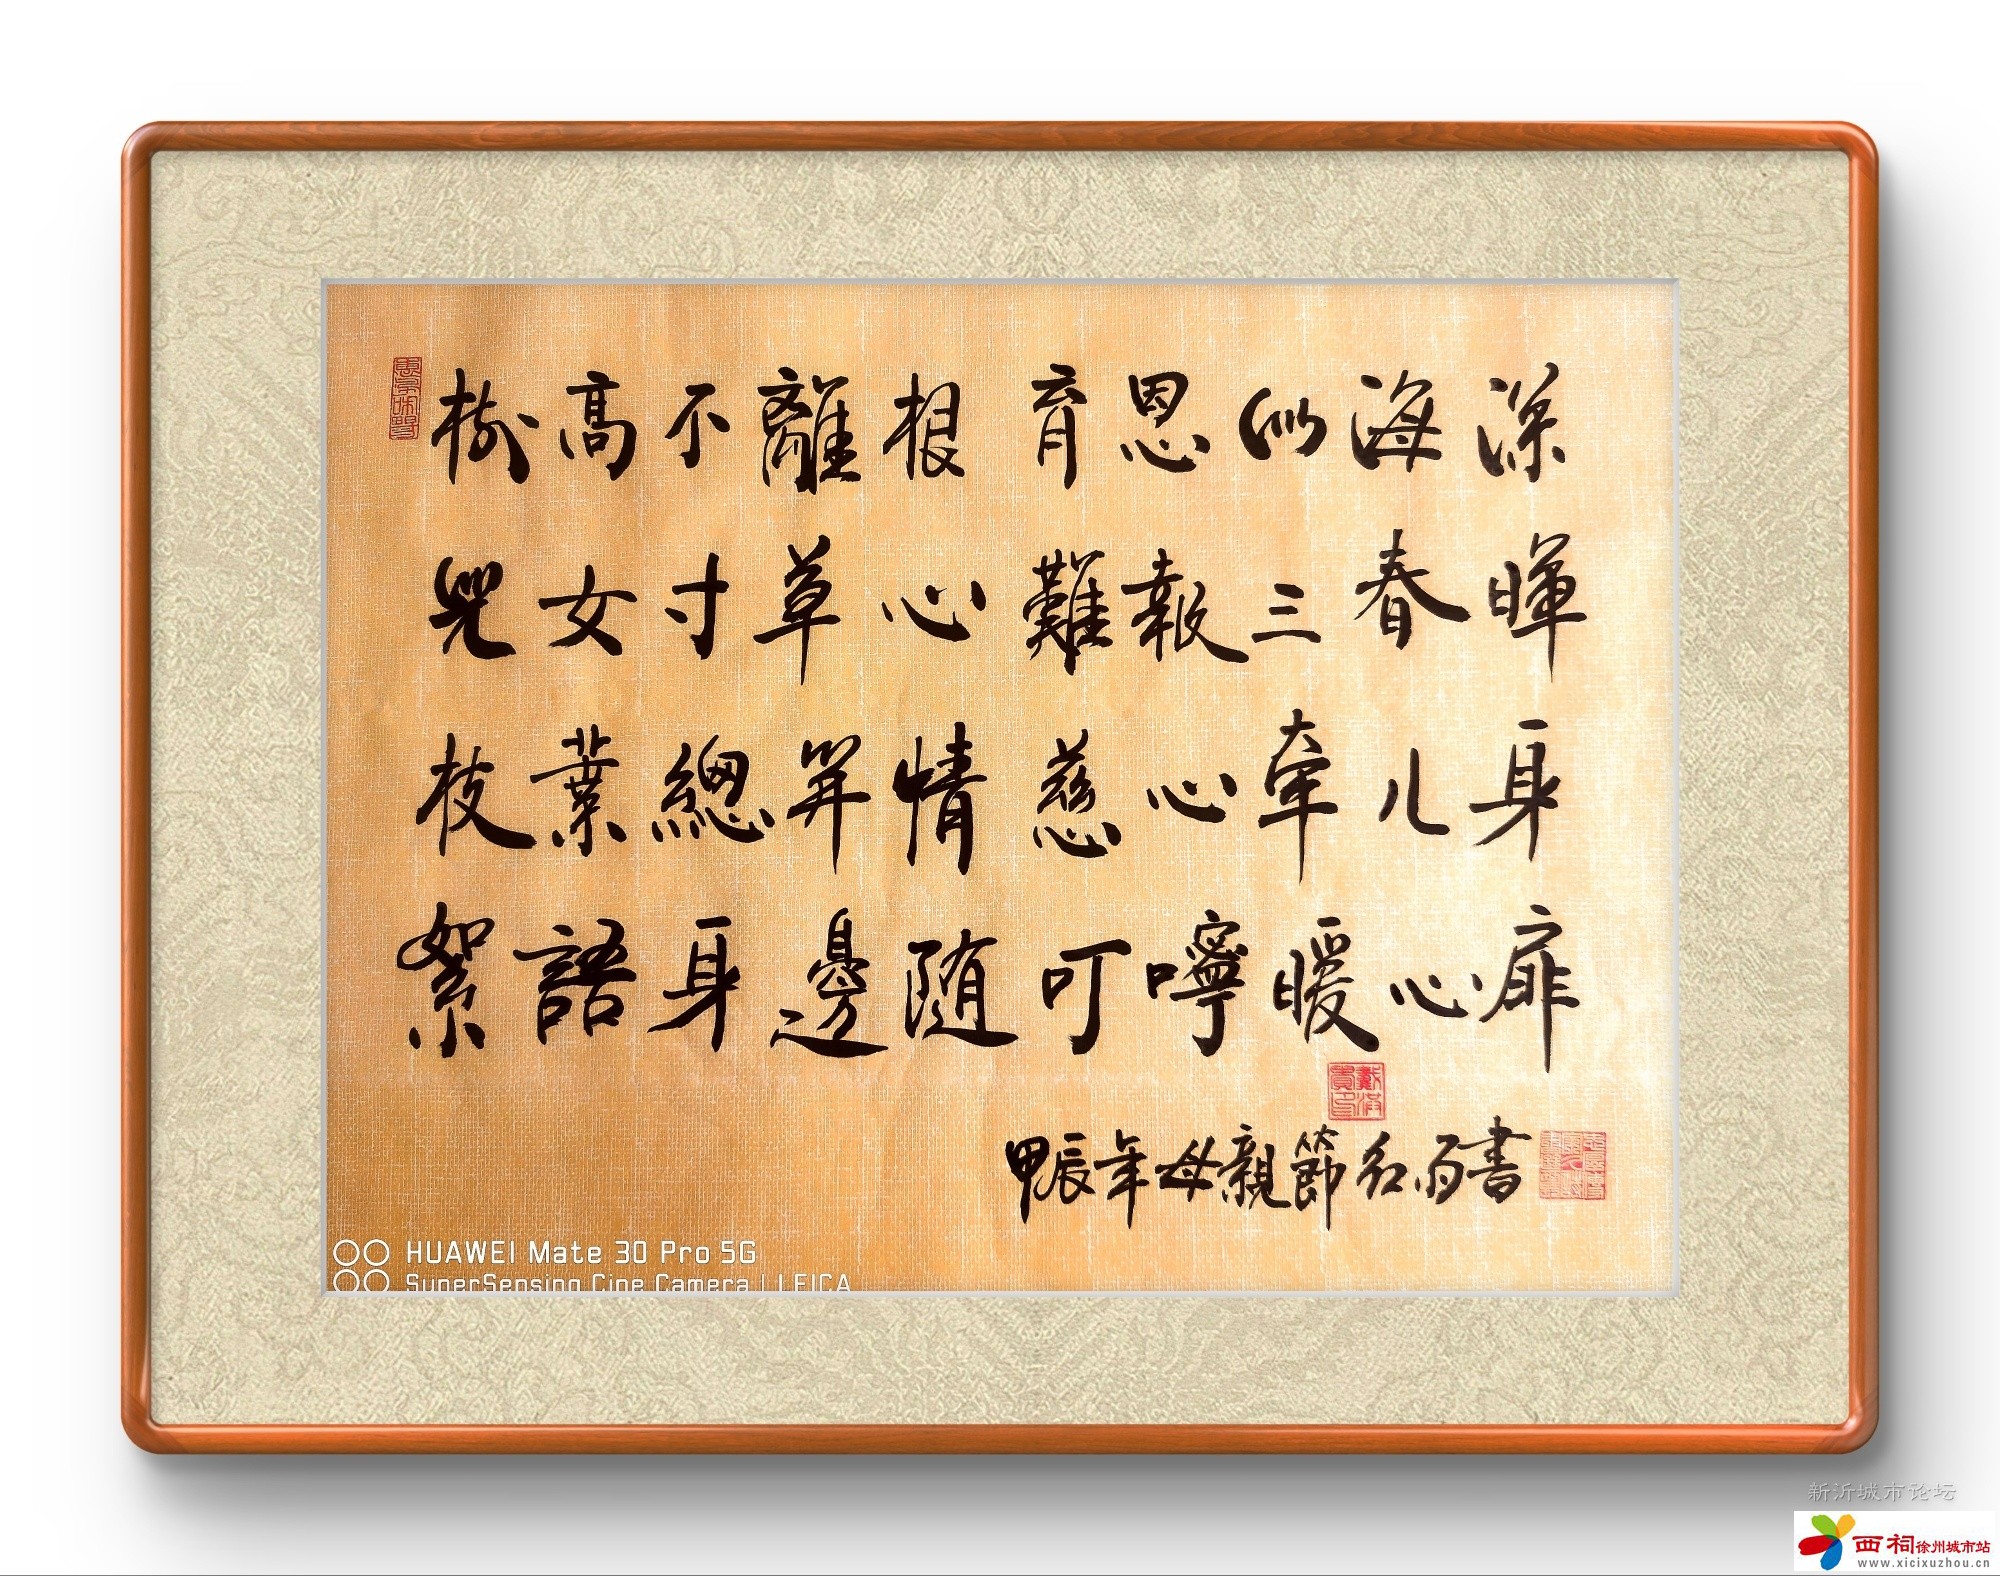 樹高不離根 育恩似海深
兒女寸草心 難報三春暉
枝葉總關情 慈心牽儿身
絮語身邊随 叮嚀暖心扉
甲辰年母親節紅雨書
HUAWEI Mate 30 Pro 5G
SuperSensing Cine Camera | LEICA
新沂城市论坛
西祠徐州城市站
www.xicixuzhou.cn